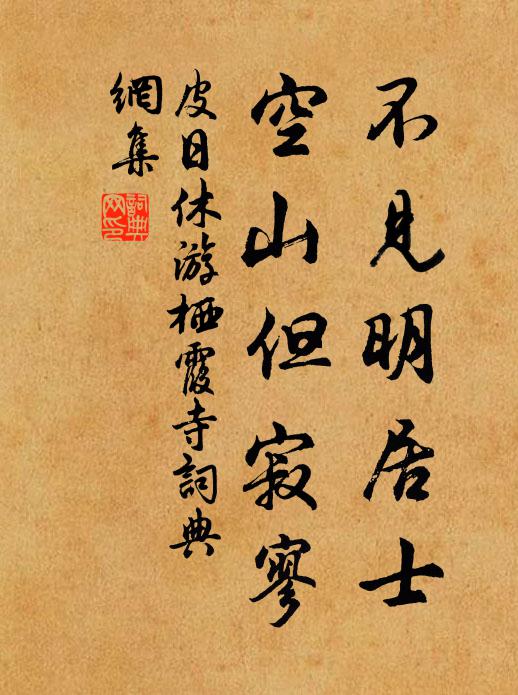 不見明居士
空山但寂寥
皮日休游栖霞寺詞典
網集
詞典網印